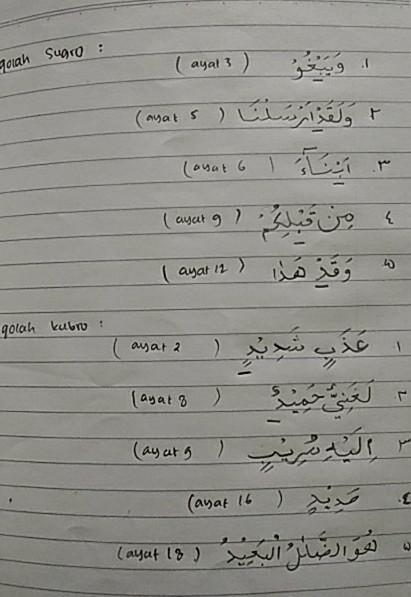 qolah Sugro :
١. وَيَبْغُوْ (ayat 3)
٢ وَلَقَدْ اَرْسَلْنَا (ayat 5)
٣. اَبْنَآءَ (ayat 6)
٤ مِن قَبْلِكُمْ (ayat 9)
٥ وَقَدْ هَدٰا (ayat 12)
qolah kubro :
١ عَذَبٍ شَدِيْدٍ (ayat 2)
٢ لَغَنِيٌّ حَمِيْدٌ (ayat 8)
٣ اِلَيْهِ مُرِيْبٍ (ayat 9)
٤. صَدِيْدٍ (ayat 16)
٥ هُوَ الضَّلٰلُ الْبَعِيْدُ (ayat 18)